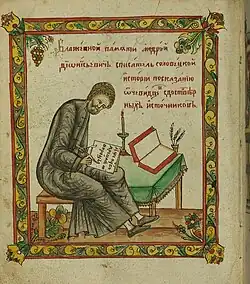 Блаженной памяти Андрей
Дионисьевич списатель соловецкой
истории по сказанию
очевидцов и достовѣр
ныхъ источниковъ